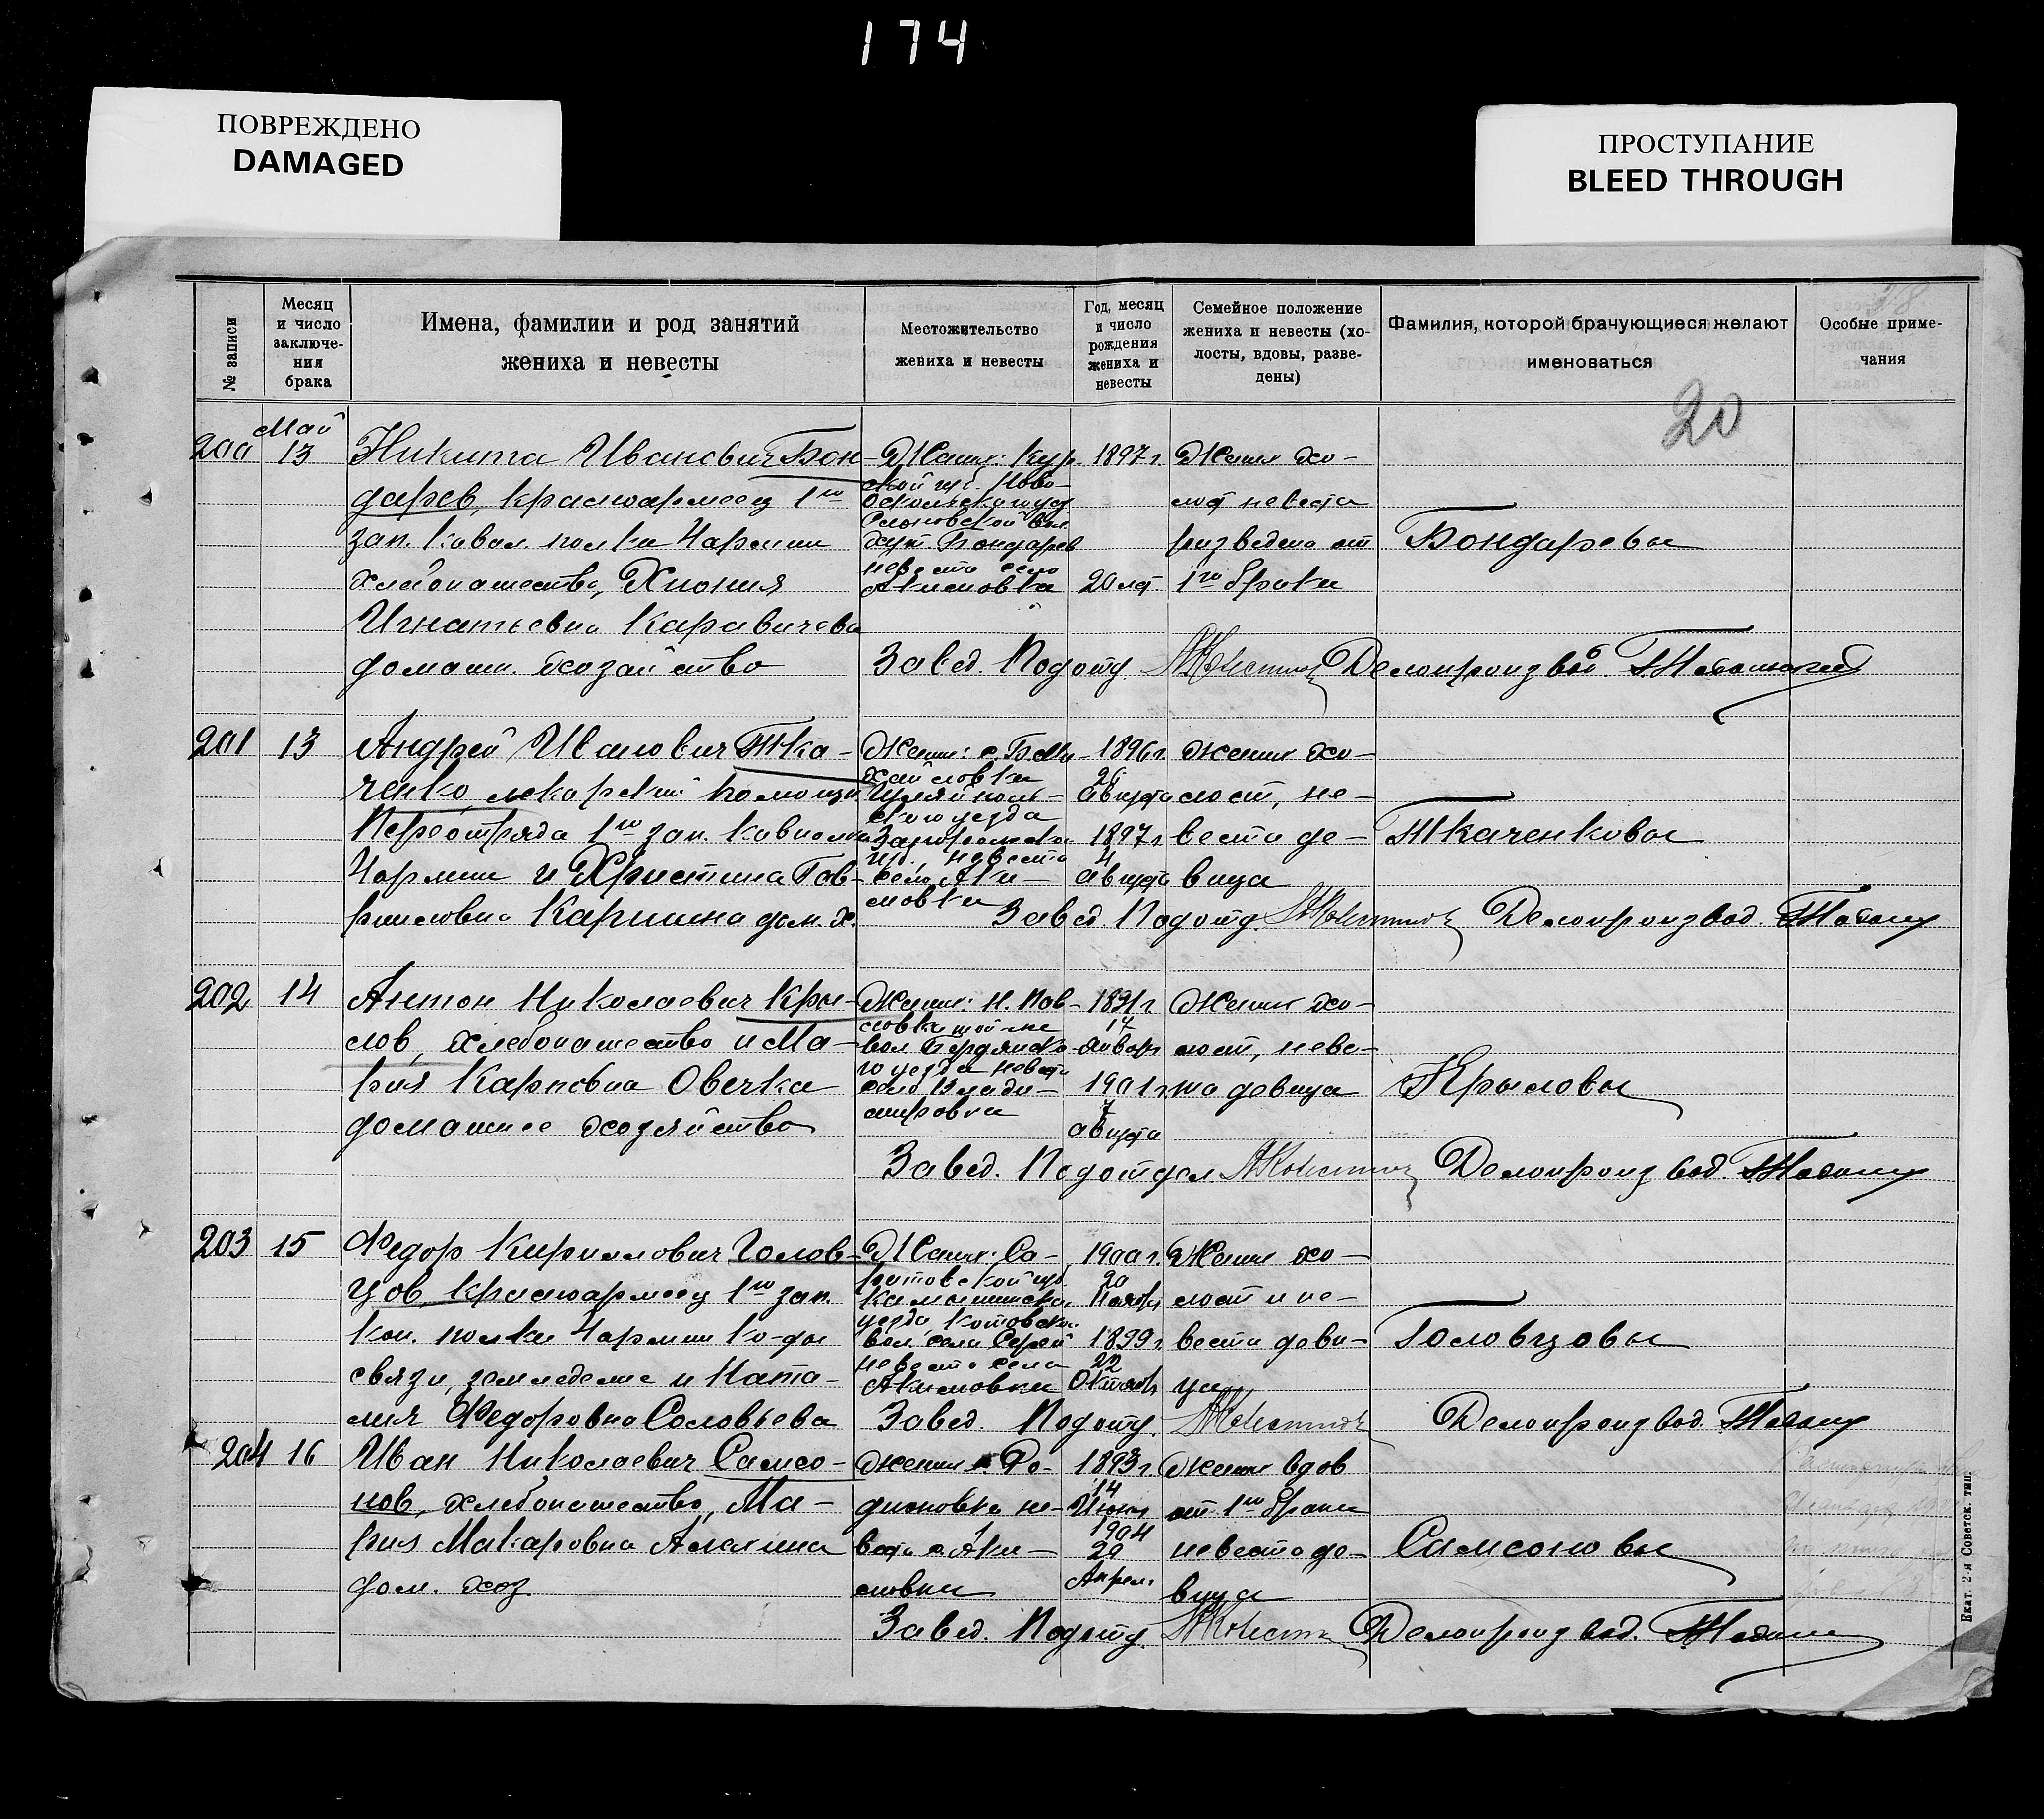 174
ПОВРЕЖДЕНО
DAMAGED
ПРОСТУПАНИЕ
BLEED THROUGH
№ записи
Месяц
и число
заключе-
ния
брака
Имена, фамилии и род занятий
жениха и невесты
Местожительство
жениха и невесты
Год, месяц
и число
рождения
жениха и
невесты
Семейное положение
жениха и невесты (хо-
лосты, вдовы, разве-
дены)
Фамилия, которой брачующиеся желают
именоваться
Особые приме-
чания
20
200
Май
13
Никита Иванович Бон-
дарев, красноармеец 1го
зап. кавал. полка
хлебопашество, Хиония
Игнатьевна Каравичева
домашн. хозайство
Жених: Кур-
ской губ. Ново-
Оскольского уез
Слоновской вол.
хут. Бондарев
невеста село
Акимовка
1897 г.
20 лет
Жених хо-
лост невеста
разведена от
1го брака
Бондаревы
Завед. Подотд. Делопроизвод.
201
13
Андрей Иванович Тка-
ченко, лекарский помощн
1го зап. кав полка
и Христина Гав-
риловна Каришна дом. х.
Жених: с. Б. Ми-
хайловки
Гуляйполь-
ского уезда
Запорожской
губ., невеста
село Аки-
мовки
1896 г.
26
августа
1897 г
4
августа
жених хо-
лост, не-
веста де-
вица
Ткаченковы
Завед. Подотд. Делопроизвод.
202
14
Антон Николаевич Кры-
лов, хлебопашество и Ма-
рия Карповна Овечка
домашнее хозяйство
Жених: Н. Пав-
ловка
вол Бердянско
го уезда невеста
село Влади-
мировка
17
января
1901 г.
7
августа
Жених хо-
лост, неве-
та девица
Крыловы
Завед. Подотдел Делопроизвод.
203
15
Федор Кириллович Голов-
цов, красноармеец 1го зап.
кав. полка ко-ды
связи, земледелие и Ната-
лия Федоровна Соловьева
Жених: Са-
ратовской губ.
Камышинско.
уезда Котовской
вол. села Серей
невеста села
Акимовки
1900 г.
20
Ноября
1899 г
22
Октяб
Жених хо-
лост и не-
веста деви-
ца
Головцовы
Завед. Подотд. Делопроизвод.
204
16
Иван Николаевич Самсо-
нов, хлебопашество, Ма-
рия Макаровна Алехина
дом. хоз
Жених с. Ро-
дионовка не-
веста с. Аки-
мовки
1893 г
14
Июня
1904
20
Апрел.
Жених вдов
от 1го брака
невеста де-
вица
Самсоновы
Завед. Подотд. Делопроизвод.
Екат. 2-я Советск. тип.